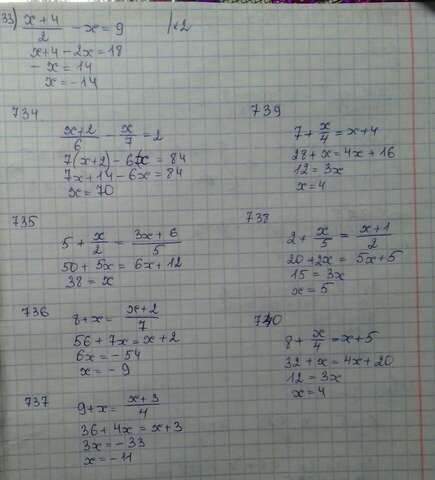 33) x+4/2 - x = 9 |x2
x+4-2x=18
-x=14
x=-14
734
x+2/6 - x/7 = 2
7(x+2)-6x=84
7x+14-6x=84
x=70
735
5 + x/2 = 3x+6/5
50+5x=6x+12
38=x
736
8+x= x+2/7
56+7x=x+2
6x=-54
x=-9
737
9+x= x+3/4
36+4x=x+3
3x=-33
x=-11
739
7+ x/4 =x+4
28+x=4x+16
12=3x
x=4
738
2+ x/5 = x+1/2
20+2x=5x+5
15=3x
x=5
740
8+ x/4 =x+5
32+x=4x+20
12=3x
x=4